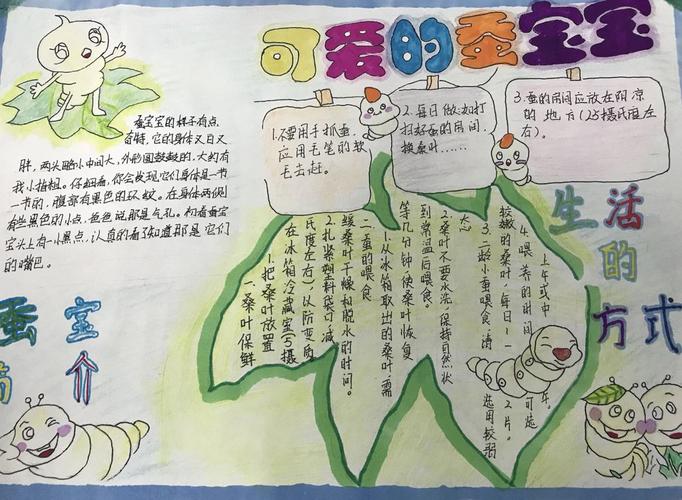 可爱的蚕宝宝
蚕宝宝的样子有点
奇特,它的身体又白又
胖,两头略小中间大,外形圆鼓鼓的,大约有
我小指粗。仔细看,你会发现它们身体是一节
一节的,腹部有黑色的环蚊。在身体两侧
有些黑色的小点,爸爸说那是气孔。初看蚕宝
宝头上有一小黑点,认真的看了知道那是它们
的嘴巴。
1.不要用手抓蚕,
应用毛笔的软
毛去赶。
2.每日做:如打
扫好蚕的房间,
换桑叶……
3.蚕的房间应放在阴凉
的地方(25摄氏度左
右)。
一、桑叶保鲜
1.把桑叶放置
在冰箱冷藏室(5摄
氏度左右),以防变质
2.扎紧塑料袋口,减
缓桑叶干燥和脱水的时间。
二、蚕的喂食
1.从冰箱取出的桑叶,需
等几分钟,使桑叶恢复
到常温后喂食。
2.桑叶不要水洗,保持自然状
态
3.二龄小蚕喂食,请
选用较弱
较嫩的桑叶,每日1-2片。
4.喂养的时间可选
上午或中午。
生活的方式
蚕宝
简介